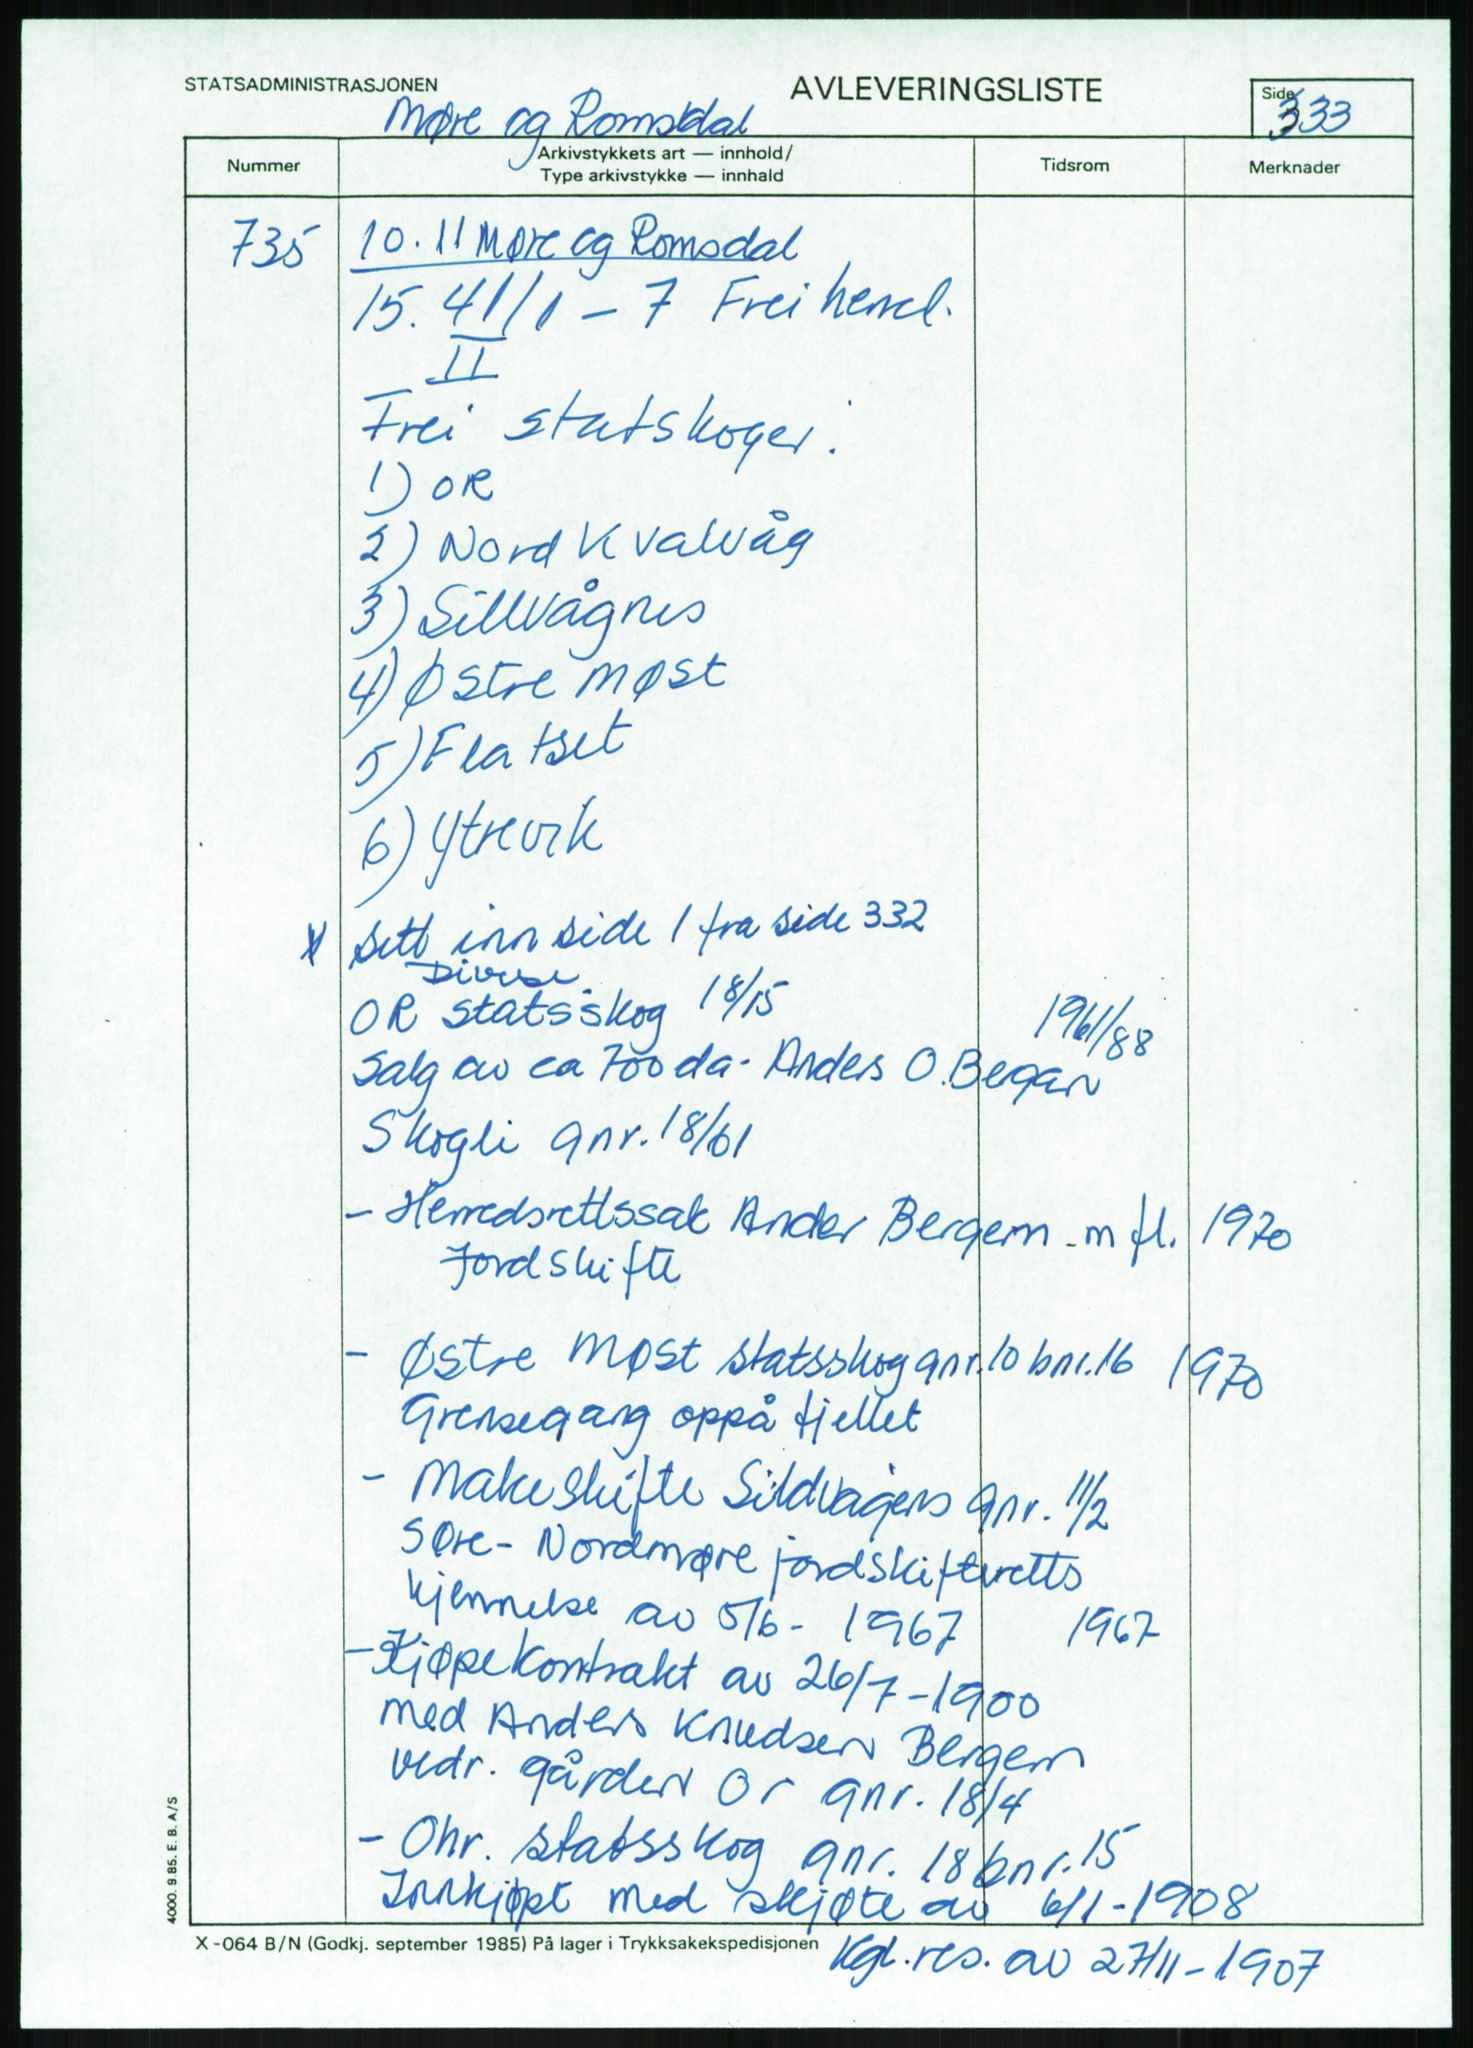 STATSADMINISTRASJONEN
AVLEVERINGSLISTE
Side
333
Møre og Romsdal
Nummer
Arkivstykkets art — innhold/
Type arkivstykke — innhald
Tidsrom
Merknader
735
10.11 Møre og Romsdal
15. 41/1 - 7 Frei herred.
II
Frei statskoger.
1) OR
2) Nord Kvalvåg
3) Sillvågnes
4) Østre Møst
5) Flatset
6) Ytrevik
Sett inn side 1 fra side 332
Diverse
OR statsskog 18/15
1961/88
Salg av ca 700 da - Anders O. Bergan
Skogli gnr. 18/61
- Herredsrettssak Ander Bergem - m fl. 1970
Jordskifte
- Østre Møst statsskog gnr. 10 bnr. 16 1970
Grensegang oppå fjellet
- Makeskifte Sildvågens gnr. 11/2
Søre - Nordmøre jordskifteretts
kjennelse av 5/6 - 1967 1967
- Kjøpekontrakt av 26/7 - 1900
med Anders Knudsen Bergem
vedr. gården Or gnr. 18/4
- Ohr. statsskog gnr. 18 bnr. 15
Innkjøpt med skjøte av 6/1 - 1908
Kgl. res. av 27/11 - 1907
4000. 9.85. E. B. A/S
X-064 B/N (Godkj. september 1985) På lager i Trykksakekspedisjonen